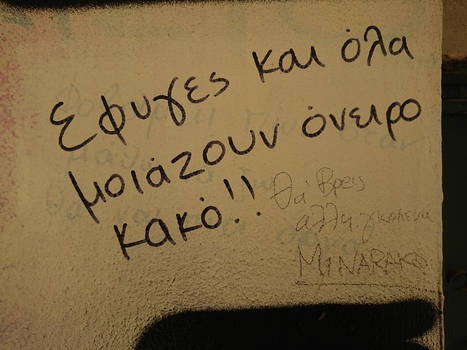 Εφυγες και όλα
μοιάζουν όνειρο
κακό!!
θα βρεις
αλλη γκομενα
MINARAKO